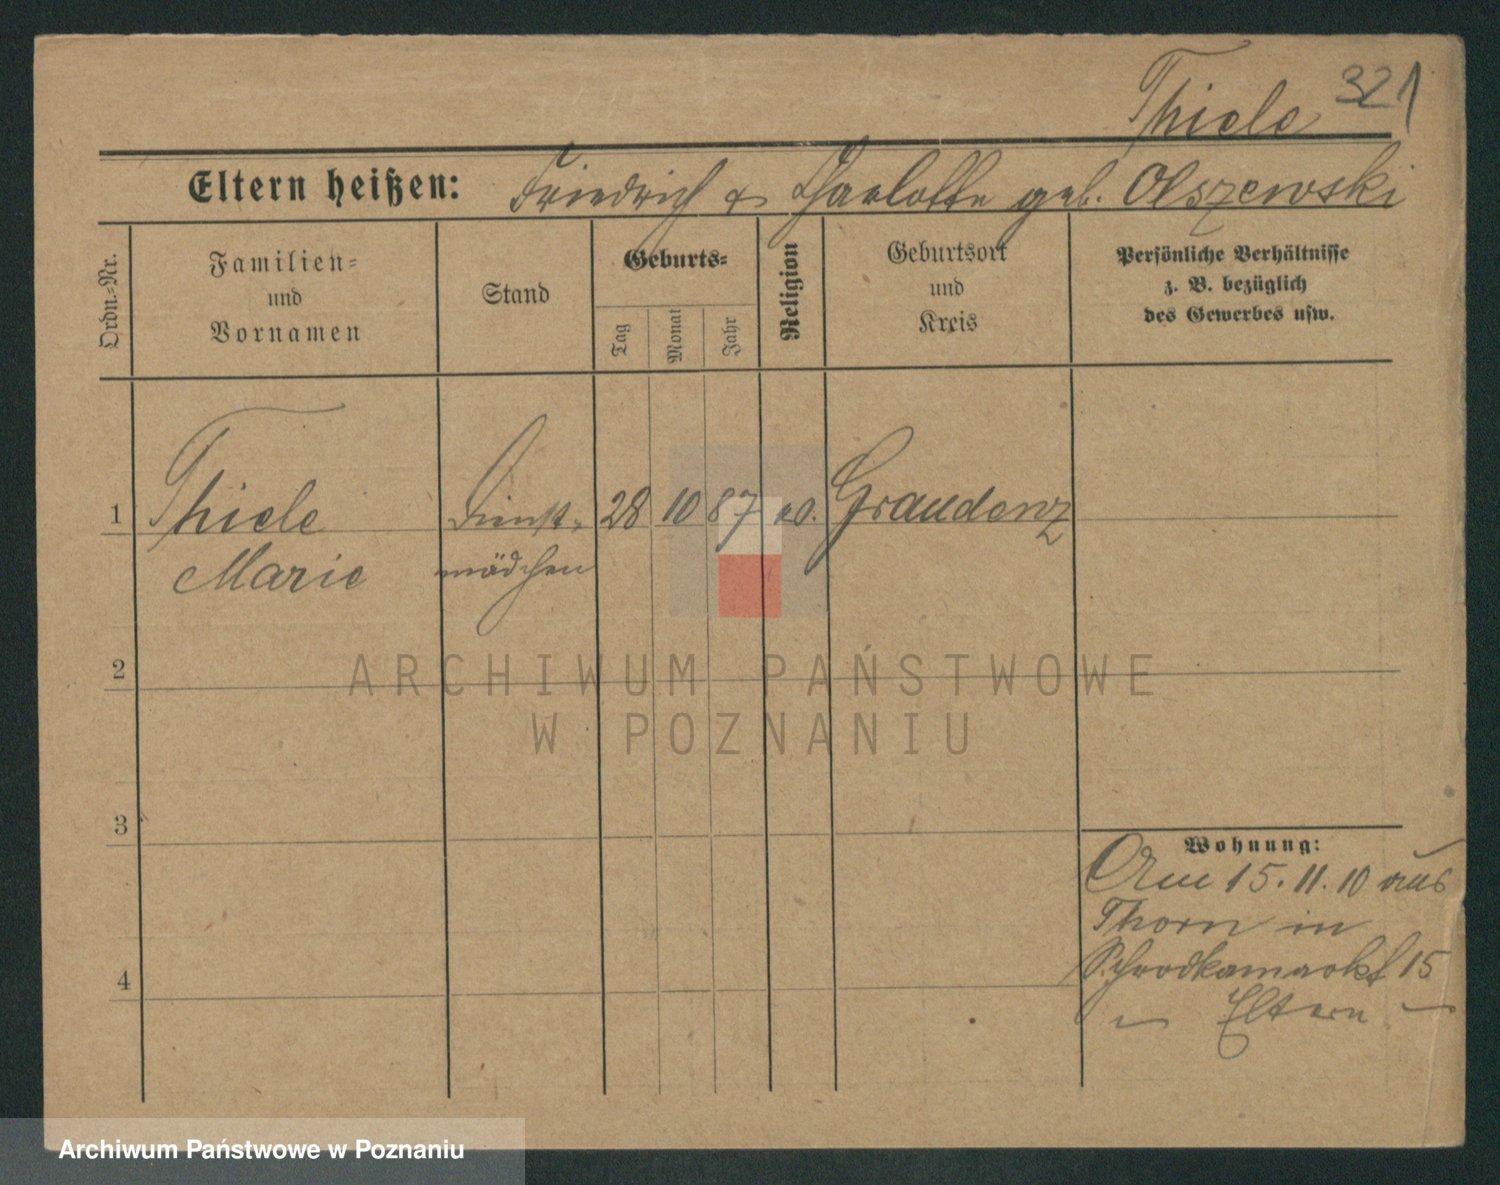 321
Thiele
Eltern heißen: Friedrich & Charlotte geb. Olszewski
Ordn.-Nr.
Familien-
und
Vornamen
Stand
Geburts-
Tag
Monat
Jahr
Religion
Geburtsort
und
Kreis
Persönliche Verhältnisse
z. B. bezüglich
des Gewerbes usw.
1 Thiele Dienst- 28 10 87 ev. Graudenz
Marie mädchen
2
3
4
Wohnung:
Am 15.11.10 aus
Thorn in
Schrodkamarkt 15
– Eltern –
ARCHIWUM PAŃSTWOWE
W POZNANIU
Archiwum Państwowe w Poznaniu